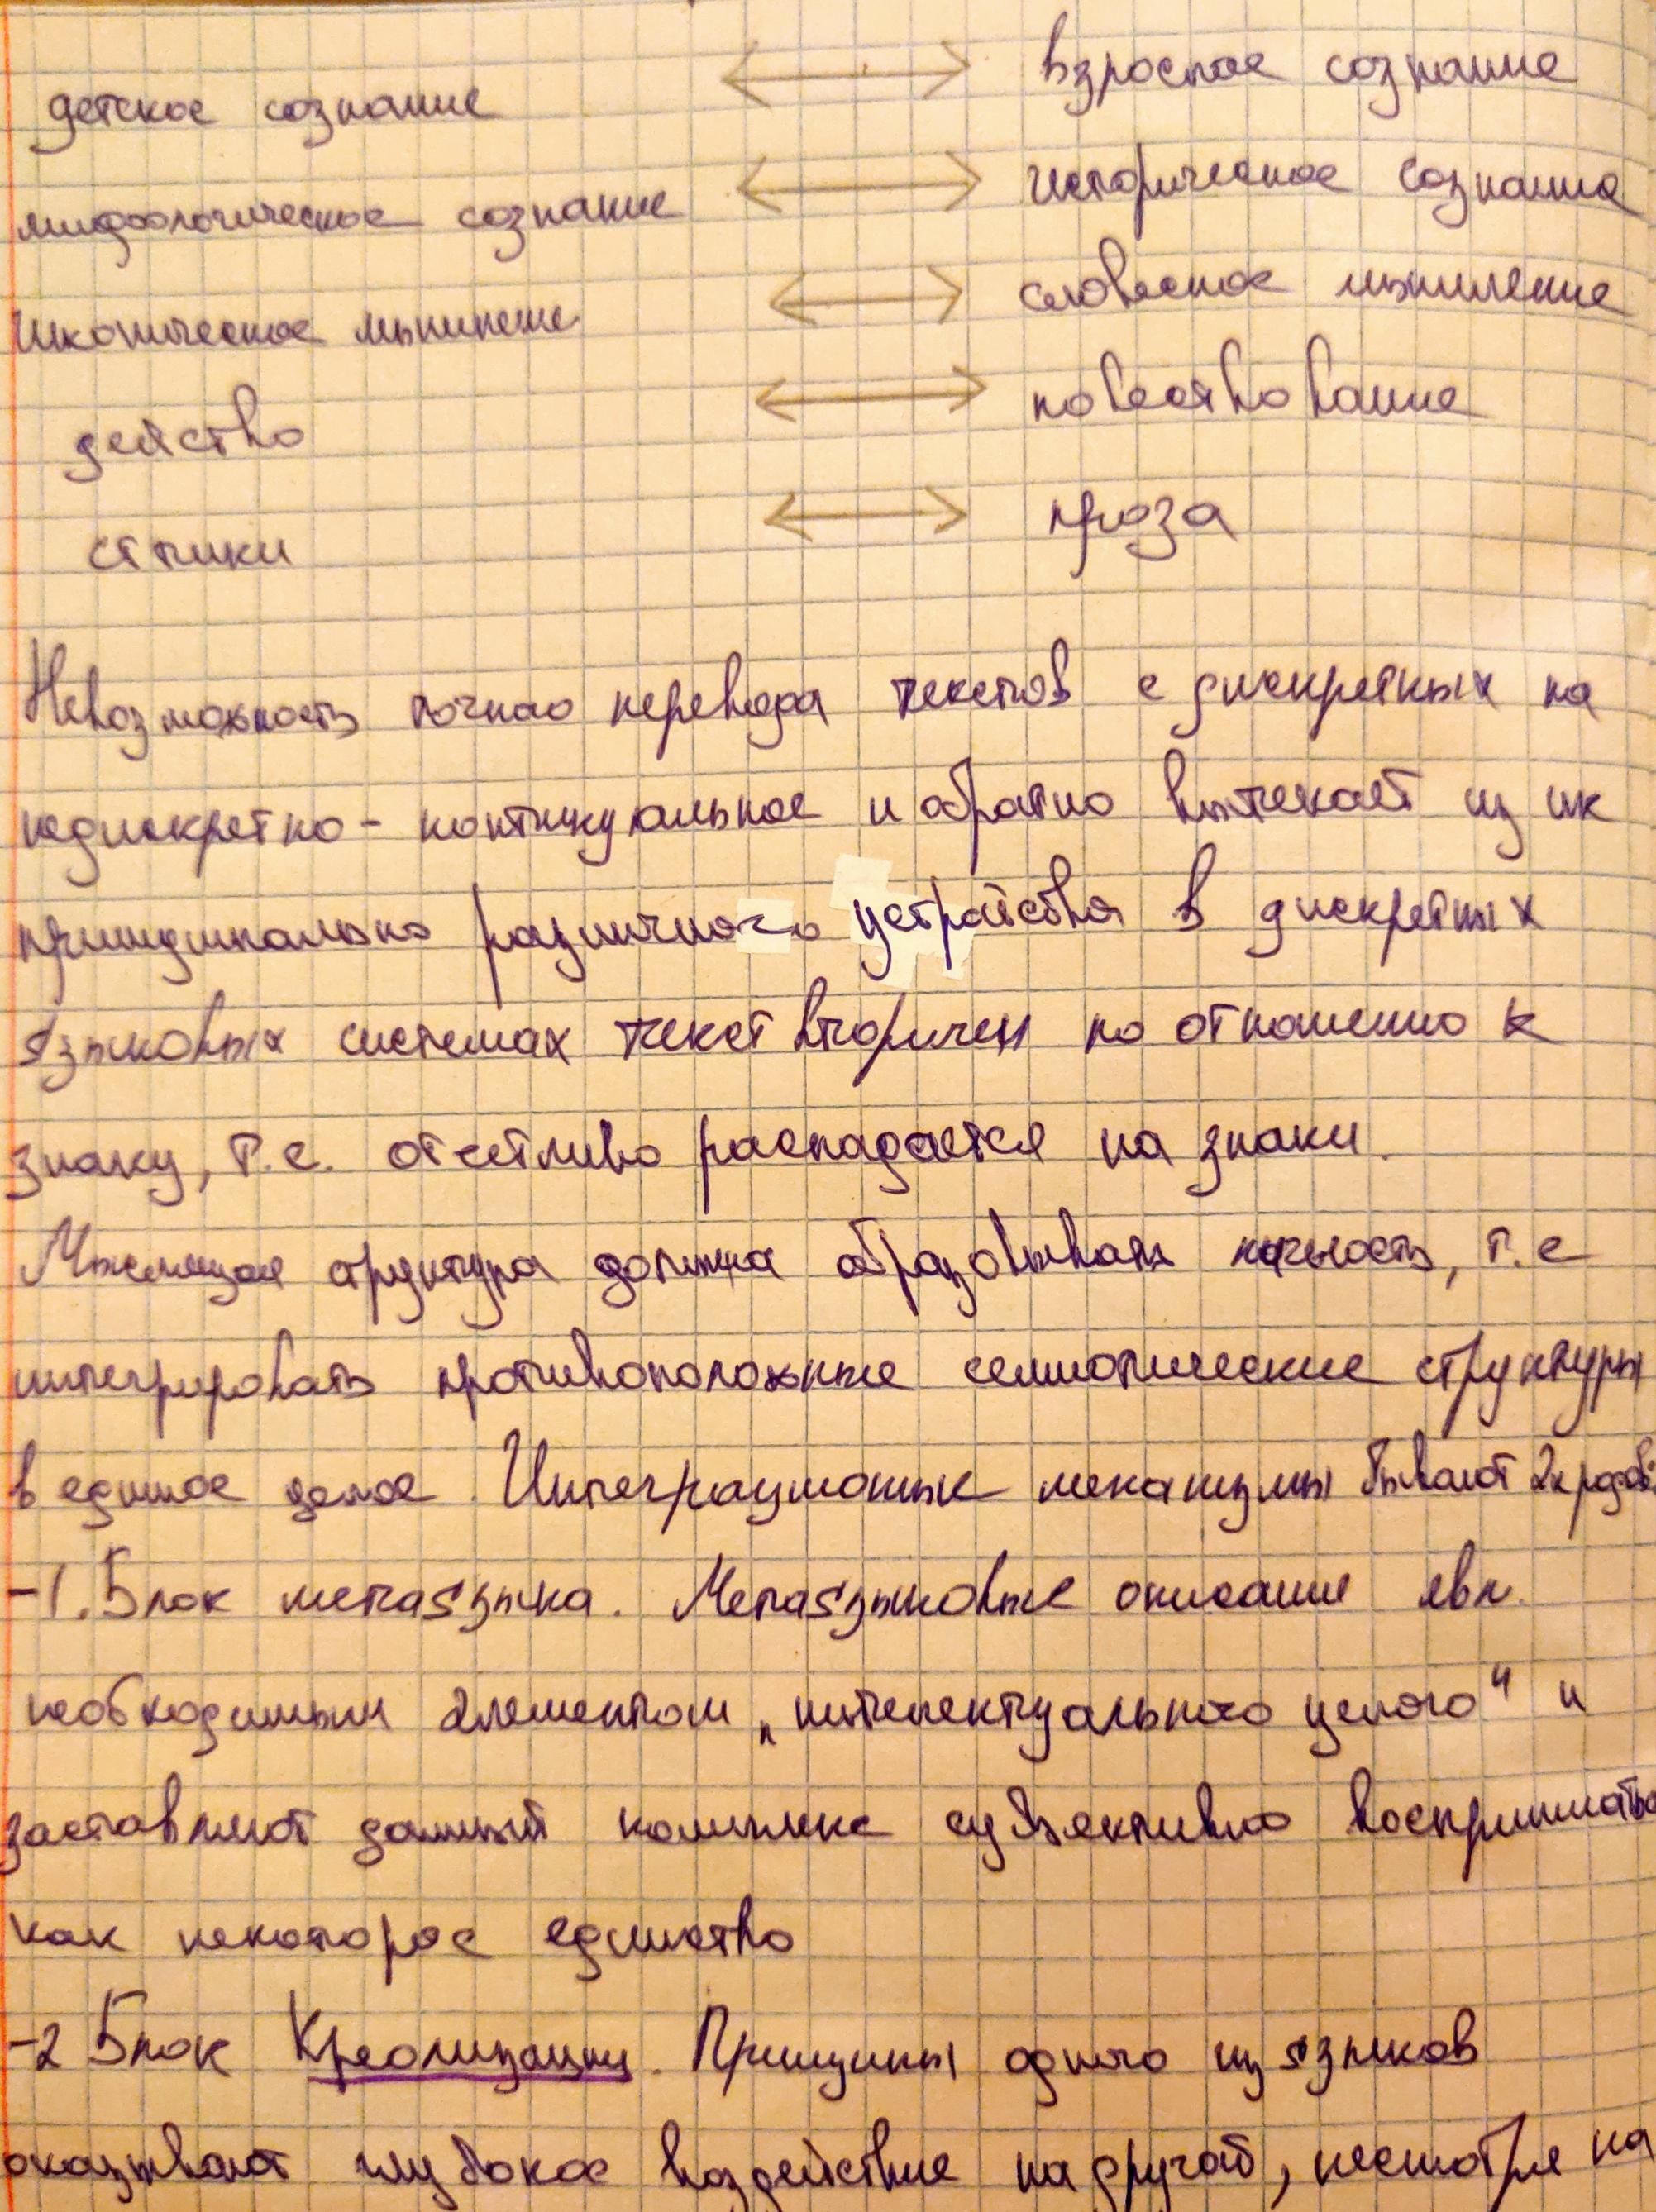 детское сознание ⟷ взрослое сознание
мифологическое сознание ⟷ историческое сознание
иконическое мышление ⟷ словесное мышление
действо ⟷ повествование
стихи ⟷ проза
Невозможность точного перевода текстов с дискретных на
недискретно-континуальное и обратно вытекает из их
принципиально различного устройства в дискретных
языковых системах текст вторичен по отношению к
знаку, т.е. отчетливо распадается на знаки.
Мыслящая структура должна образовывать личность, т.е
интегрировать противоположные семиотические структуры
в единое целое. Интеграционные механизмы бывают 2х родов:
-1. Блок метаязыка. Метаязыковые описание явл.
необходимым элементом „интелектуального целого" и
заставляют данный комплекс субъективно воспринимать
как некоторое единство
-2 Блок Креолизации. Принципы одного из языков
оказывают глубокое воздействие на другой, несмотря на